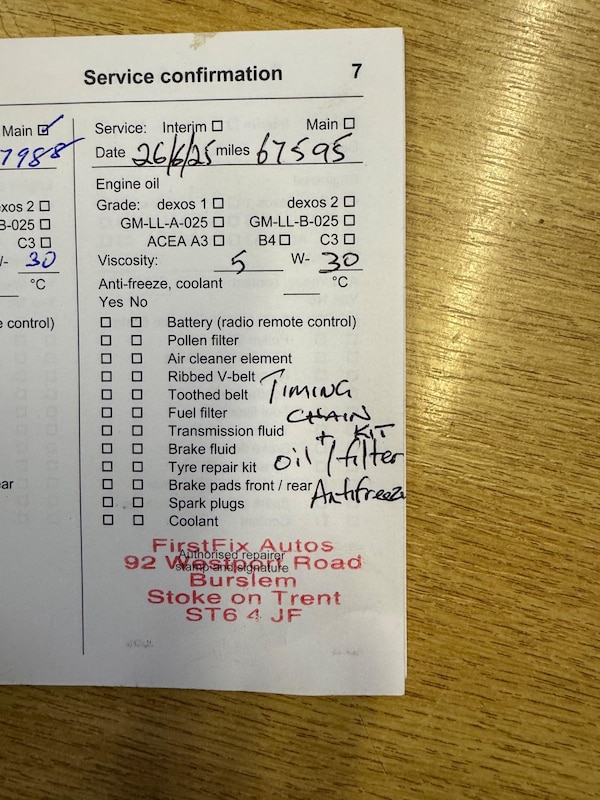 Service confirmation 7
Main
7988
xos 2
B-025
C3
W- 30
°C
e control)
ear
Service: Interim Main
Date 26/6/25 miles 67595
Engine oil
Grade: dexos 1 dexos 2
GM-LL-A-025 GM-LL-B-025
ACEA A3 B4 C3
Viscosity: 5 W- 30
Anti-freeze, coolant °C
Yes No
Battery (radio remote control)
Pollen filter
Air cleaner element
Ribbed V-belt
Toothed belt
Fuel filter
Transmission fluid
Brake fluid
Tyre repair kit
Brake pads front / rear
Spark plugs
Coolant
TIMING
CHAIN
+ KIT
oil / filter
Antifreeze
Authorised repairer
stamp and signature
FirstFix Autos
92 Westport Road
Burslem
Stoke on Trent
ST6 4 JF